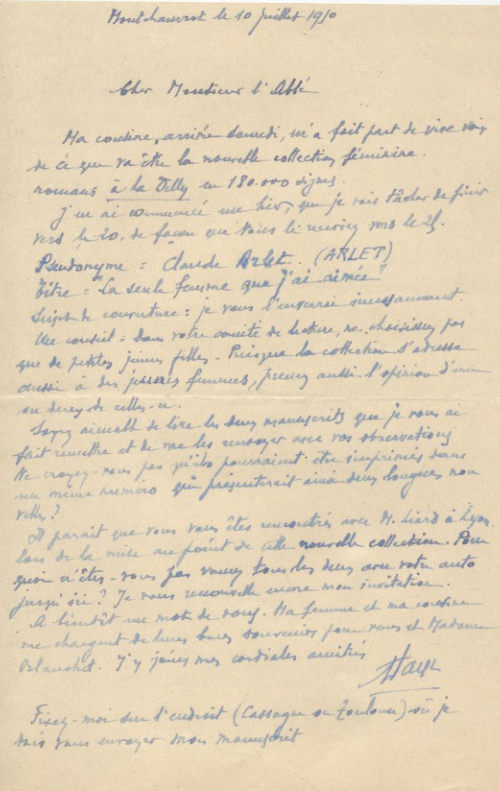 Montchauvrot le 10 juillet 1950
Cher Monsieur l'Abbé
Ma cousine, arrivée samedi, m'a fait part de vive voix
de ce que va être la nouvelle collection féminine.
romans à la Delly en 180.000 signes.
J'en ai commencé un hier, que je vais tâcher de finir
vers le 20, de façon que vous le receviez vers le 25.
Pseudonyme = Claude Arlet. (ARLET)
Titre = "La seule femme que j'ai aimée"
Sujet de couverture : je vous l'enverrai incessamment.
Un conseil = dans votre comité de lecture, ne choisissez pas
que de petites jeunes filles - Puisque la collection s'adresse
aussi à des jeunes femmes, prenez aussi l'opinion d'une
ou deux de celles-ci.
Soyez aimable de lire les deux manuscrits que je vous ai
fait remettre et de me les renvoyer avec vos observations
Ne croyez-vous pas qu'ils pourraient être imprimés dans
un même numéro qui présenterait ainsi deux longues nou
velles ?
Il paraît que vous vous êtes rencontrés avec M. Liard à Lyon
lors de la mise au point de cette nouvelle collection. Pour
quoi n'êtes-vous pas venus tous les deux avec votre auto
jusqu'ici ? Je vous renouvelle encore mon invitation.
A bientôt un mot de vous. Ma femme et ma cousine
me chargent de leurs bons souvenirs pour vous et Madame
Blanchet. J'y joins mes cordiales amitiés
Fixez-moi sur l'endroit (Cassagne ou Toulouse) où je
dois vous envoyer mon manuscrit